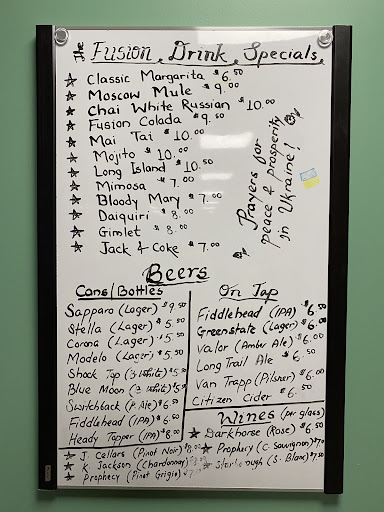 The Fusion Drink Specials
Classic Margarita $6.50
Moscow Mule $9.00
Chai White Russian $10.00
Fusion Colada $9.50
Mai Tai $10.00
Mojito $10.00
Long Island $10.50
Mimosa $7.00
Bloody Mary $7.00
Daiquiri $8.00
Gimlet $8.00
Jack & Coke $7.00
Prayers for
peace & prosperity
in Ukraine!
Beers
Cans/Bottles
Sapporo (Lager) $9.50
Stella (Lager) $5.50
Corona (Lager) $5.50
Modelo (Lager) $5.50
Shock Top (B. White) $5.50
Blue Moon (B. White) $5.50
Switchback (P. Ale) $6.50
Fiddlehead (IPA) $6.50
Heady Topper (IPA) $8.00
On Tap
Fiddlehead (IPA) $6.50
Greenstate (Lager) $6.00
Valor (Amber Ale) $6.00
Long Trail Ale $6.50
Van Trapp (Pilsner) $6.00
Citizen Cider $6.50
Wines (per glass)
Darkhorse (Rose) $6.50
Prophecy (C. Sauvignon) $7.
(S. Blanc) $7.50
J. Cellars (Pinot Noir) $8.00
K. Jackson (Chardonnay)
Prophecy (Pinot Grigio)